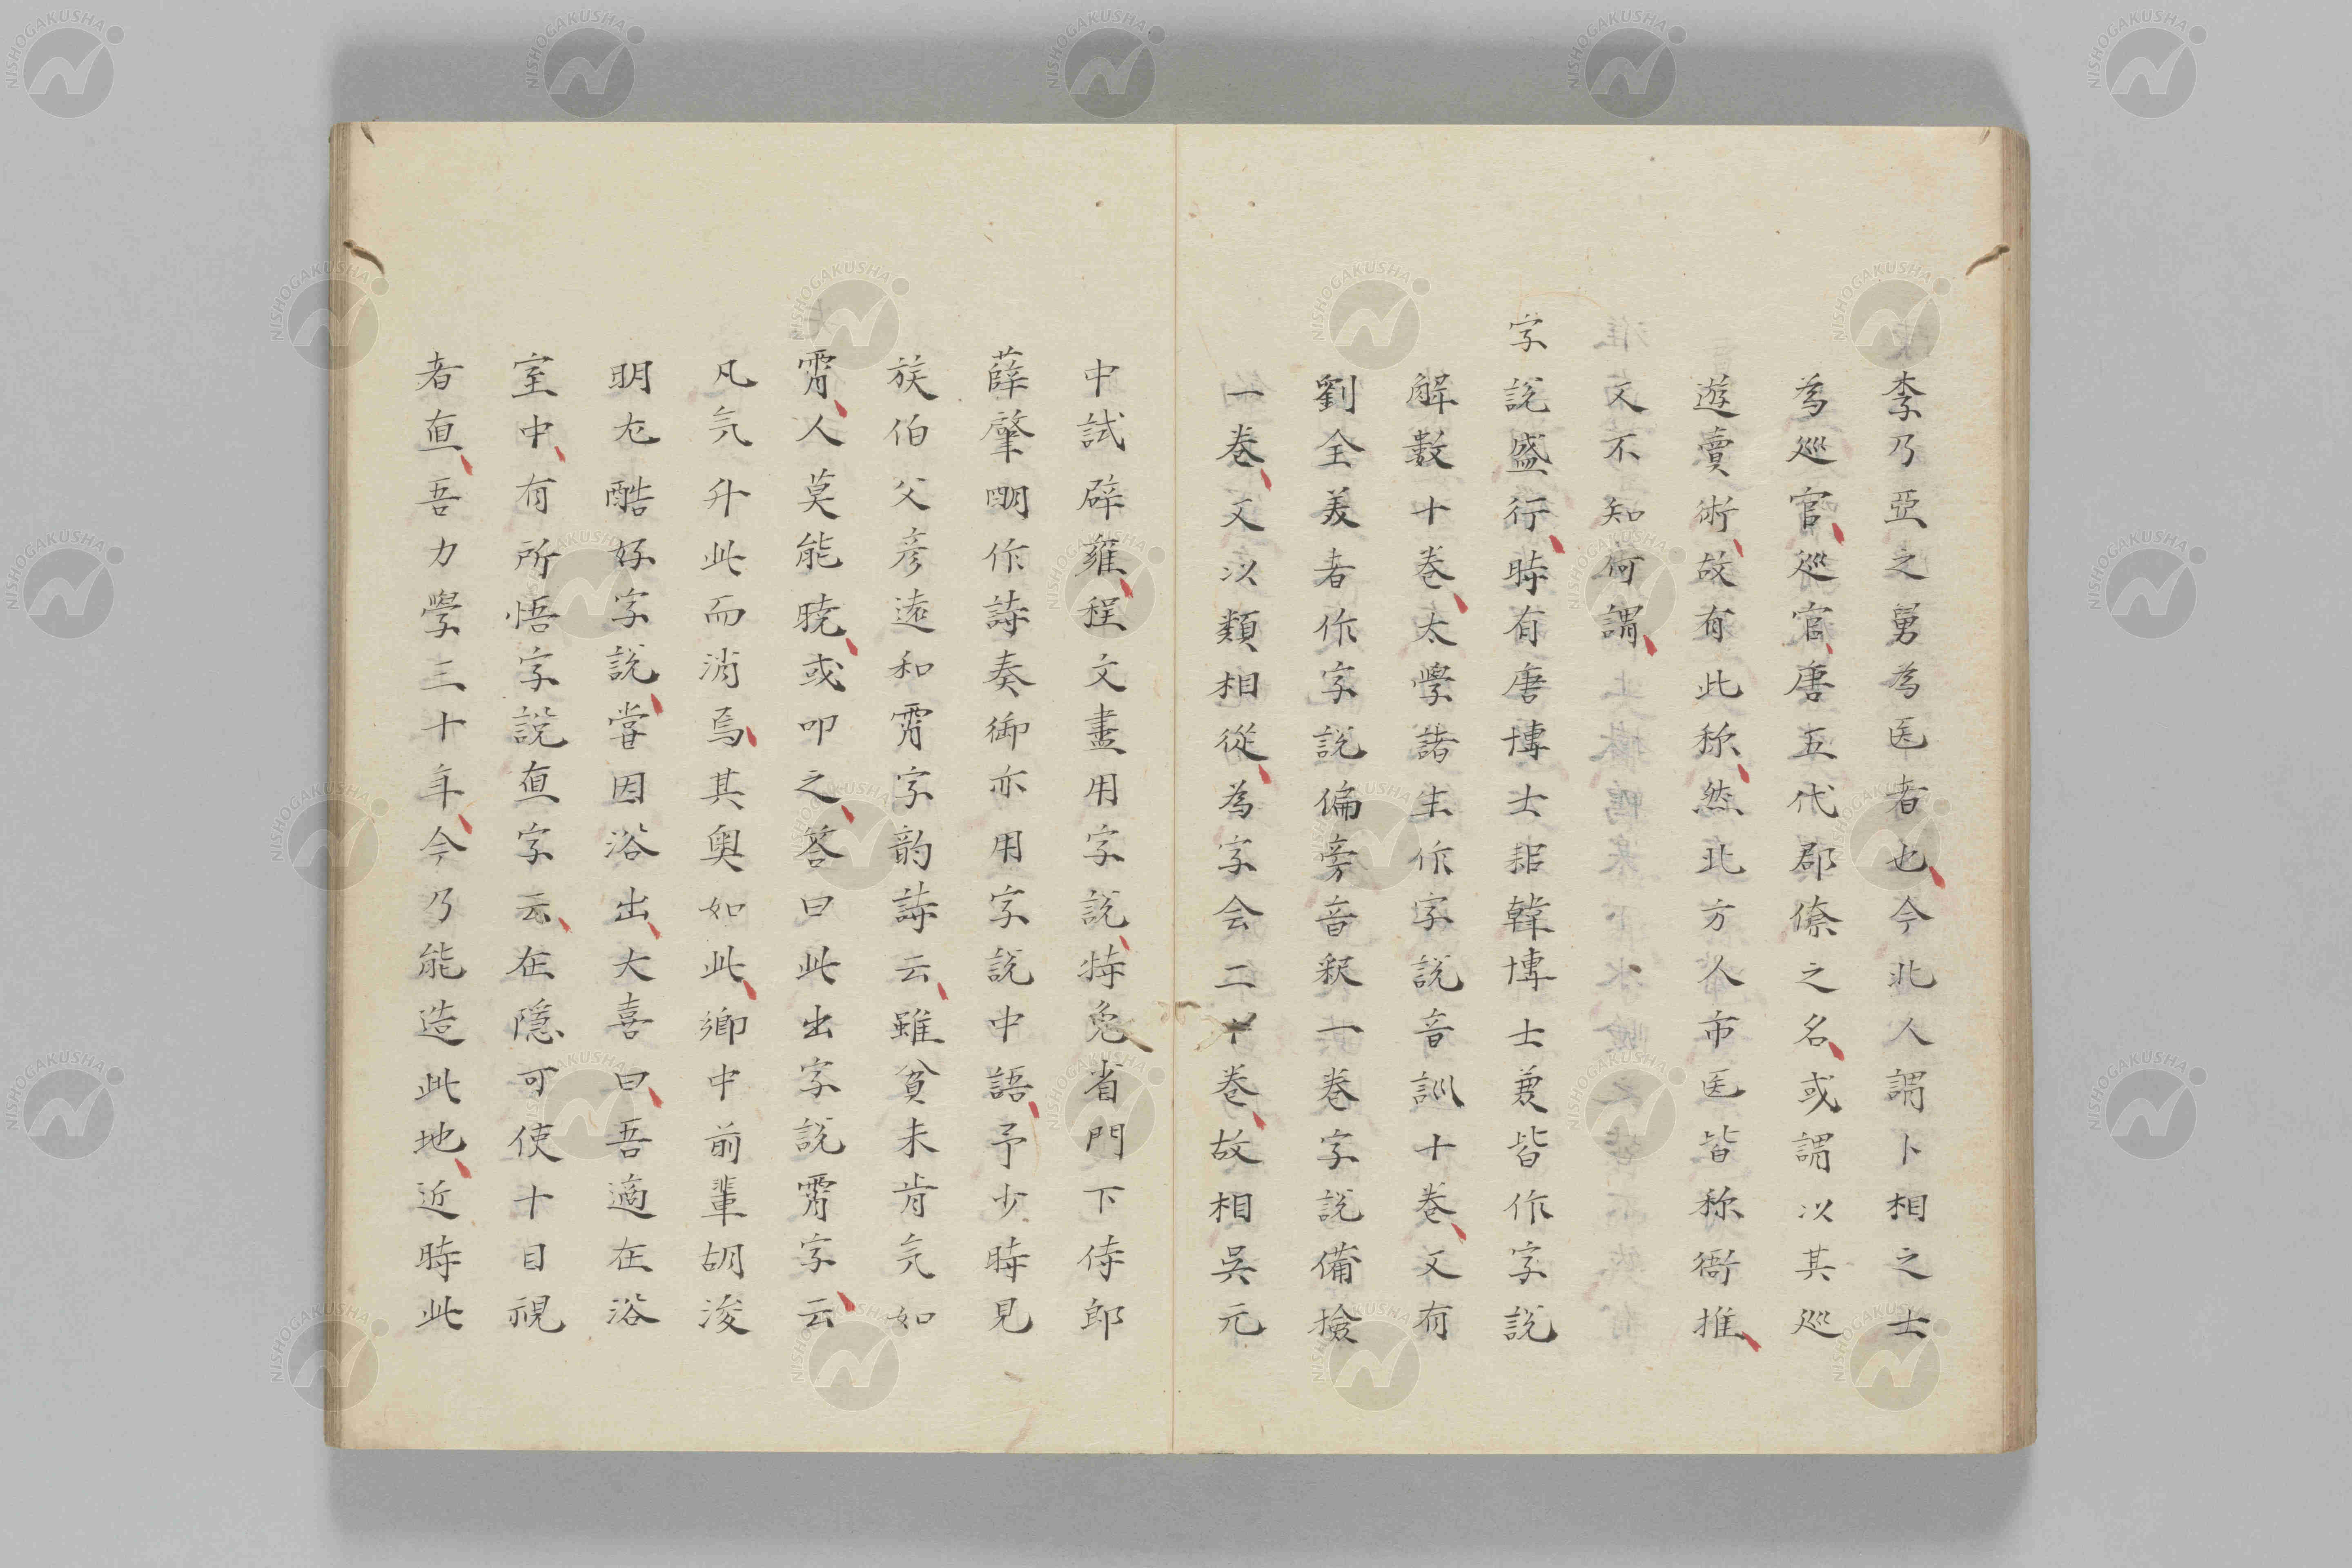 李乃亞之舅為医者也今北人謂卜相之士
為巡官巡官唐五代郡僚之名或謂以其巡
遊賣術故有此称然北方人市医皆称衙推
又不知何謂
字說盛行時有唐博士耜韓博士兼皆作字說
解数十卷太學諸生作字說音訓十卷又有
劉全美者作字說偏旁音釈一卷字說備撿
一卷又以類相從為字会二十卷故相吳元
中試辟雍程文盡用字說特免省門下侍郎
薛肇明作詩奏御亦用字說中語予少時見
族伯父彦遠和霄字韵詩云雖貧未肯気如
霄人莫能暁或叩之答曰此出字說霄字云
凡気升此而消焉其奥如此鄉中前輩胡浚
明尢酷好字說嘗因浴出大喜曰吾適在浴
室中有所悟字說直字云在隱可使十目視
者直吾力學三十年今乃能造此地近時此
NISHOGAKUSHA